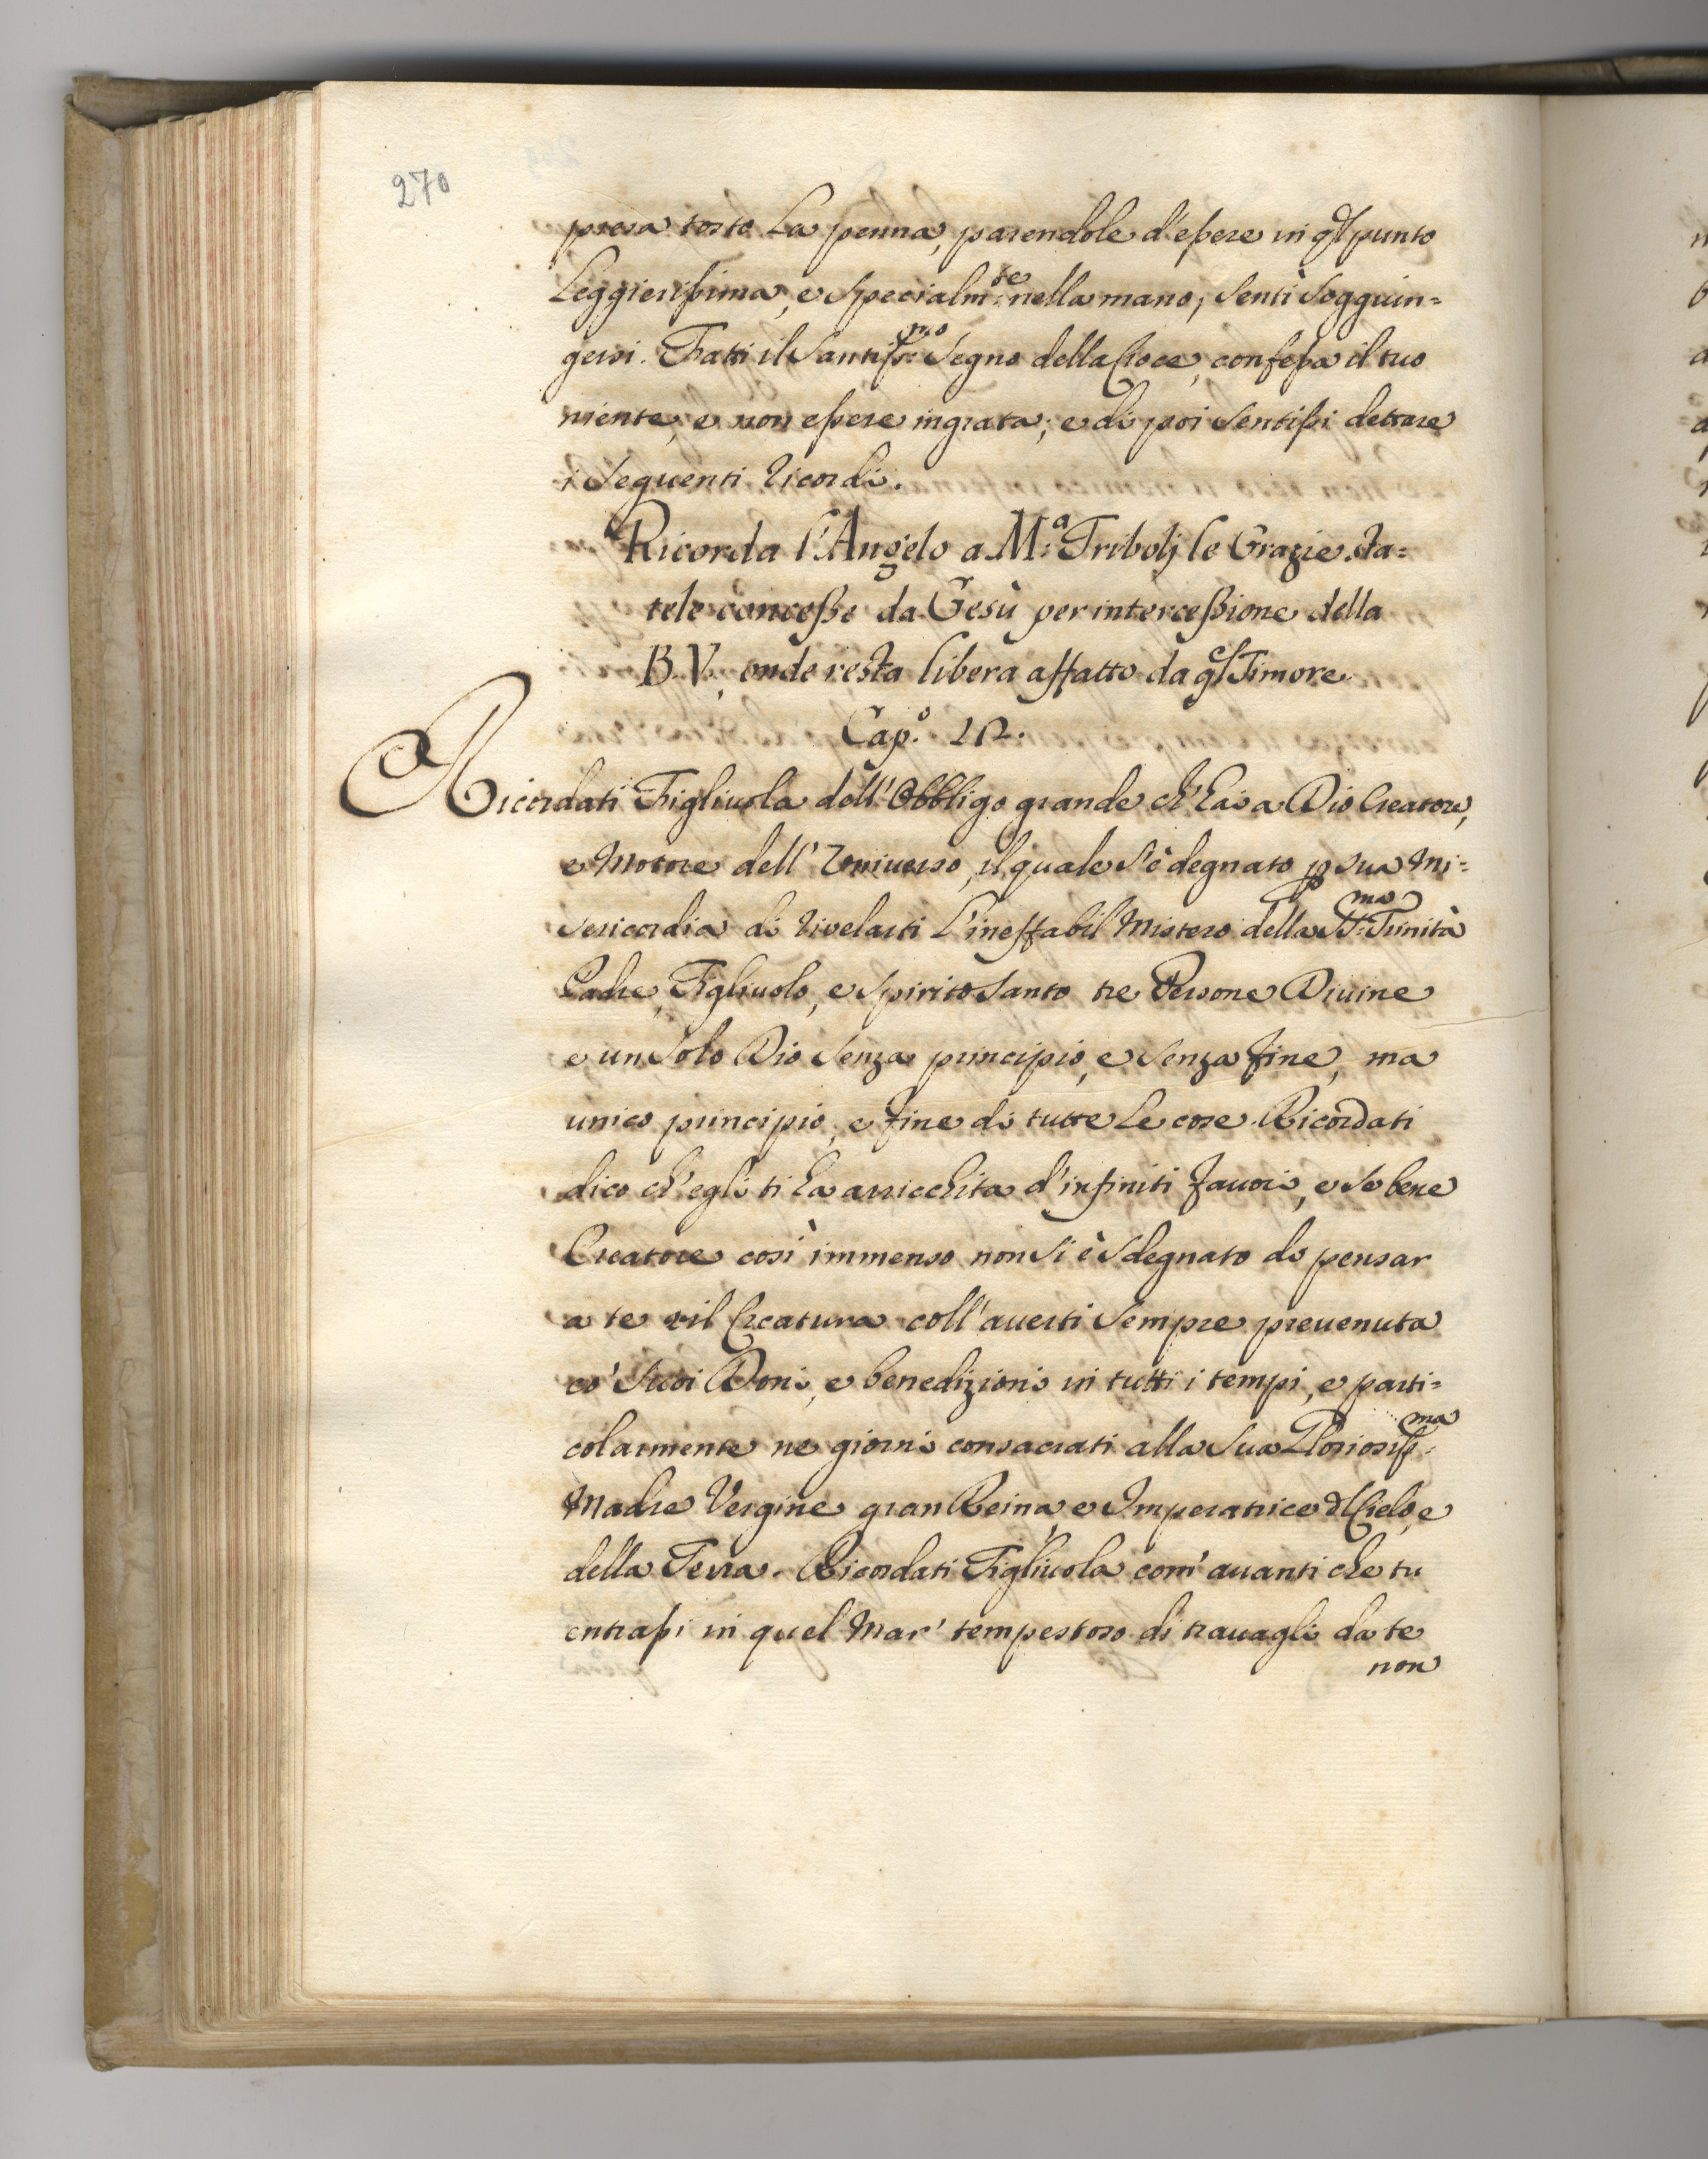 270
presa tosto la penna, parendole d'essere in ql punto
leggierissima, e specialm.te nella mano, sentì soggiun=
gersi. Fatti il Santiss.mo Segno della Croce, confessa il tuo
niente, e non essere ingrata; e di poi sentissi dettare
i seguenti ricordi.
Ricorda l'Angelo a M.a Tribolj le Grazie sta=
tele concesse da Gesù per intercessione della
B.V., onde resta libera affatto da ql Timore
Cap.o
Ricordati Figliuola dell'Obbligo grande ch'hai a Dio Creatore,
e Motore dell'Universo, il quale s'è degnato p sua Mi=
sericordia di rivelarti l'ineffabil Mistero della SS.ma Trinità
Padre, Figliuolo, e Spirito Santo tre Persone Divine
e un solo Dio senza principio, e senza fine, ma
unico principio, e fine di tutte le cose. Ricordati
dico ch'egli ti ha arricchita d'infiniti favori, e se bene
Creatore così immenso non si è sdegnato di pensar
a te vil Creatura coll'averti sempre prevenuta
co' suoi Doni, e benedizioni in tutti i tempi, e parti=
colarmente ne giorni consacrati alla sua Gloriosiss.ma
Madre Vergine gran Reina, e Imperatrice dl Cielo, e
della Terra. Ricordati Figliuola com'avanti che tu
entrassi in quel Mar' tempestoso di travagli da te
non